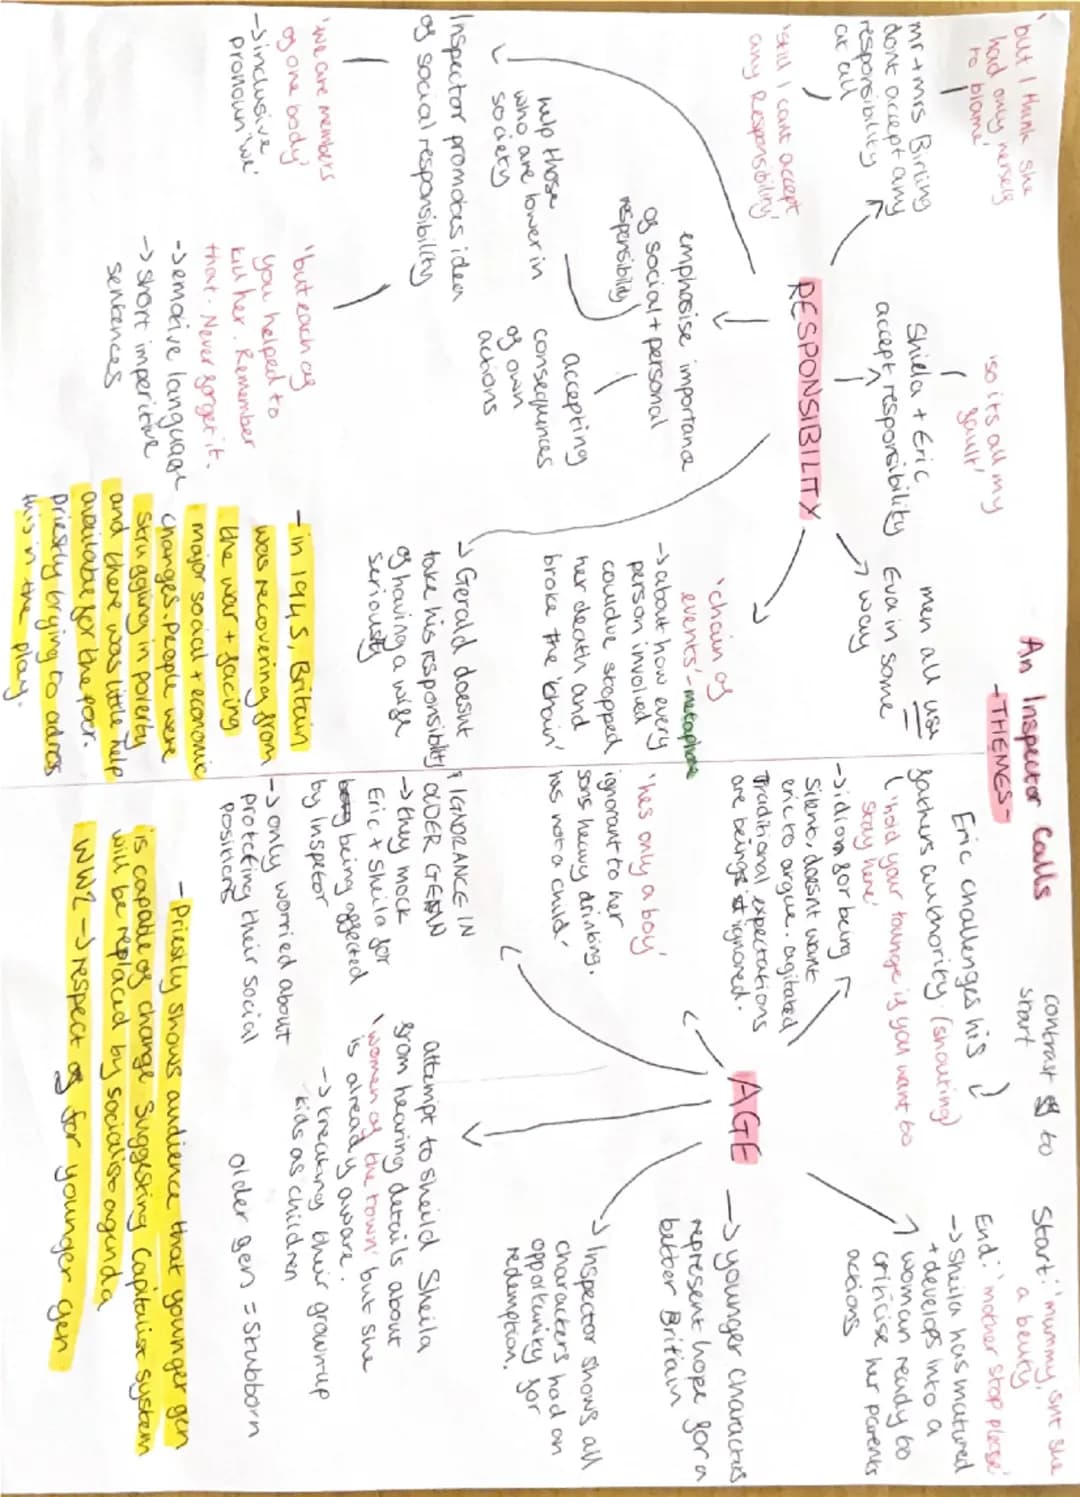 An Inspector Calls
-THEMES-
RESPONSIBILITY
'but I think she
had only herself
to blame'
mr + mrs Birling
dont accept any
responsibility
at all
'still I cant accept
any Responsibility'
'so its all my
fault'
Shiela + Eric
accept responsibility
men all use
Eva in some
way
emphosise importance
of social + personal
responsibility
help those
who are lower in
society
accepting
consequences
of own
actions
Inspector promotes idea
of social responsibility
'we are members
of one body'
-> inclusive
pronoun 'we'
'but each of
you helped to
kill her. Remember
that. Never forget it.
-> emotive language
-> short imperitive
sentences
'chain of
events' - metaphore
-> about how every
person involved
couldve stopped
her death and
broke the 'chain'
-> Gerald doesnt
take his responsibility
of having a wife
seriously
- in 1945, Britain
was recovering from
the war + facing
major social + economic
changes. People were
struggling in poverty
and there was little help
available for the poor.
priestly brging to adres
this in the play.
AGE
contrast of to
start
Start: 'mummy, isnt she
a beauty
End: 'mother stop please'
-> Sheila has matured
+ develops into a
woman ready to
criticise her parents
actions
Eric challenges his
fathers authority. (shouting)
'hold your tounge if you want to
stay here'
-> idiom for being
silent, doesnt want
eric to argue. agitated
Traditional expectations
are being ignored.
'hes only a boy'
ignorant to her
sons heavy drinking.
has not a child.
-> younger characters
represent hope for a
better Britain
-> Inspector shows all
characters had an
opportunity for
redemption.
IGNORANCE IN
OLDER GEN
-> they mock
Eric + Sheila for
being affected
by Inspector
-> only worried about
protecting their social
positions
attempt to sheild Sheila
from hearing details about
'women of the town' but she
is already aware.
-> treating their grownup
kids as children
older gen = stubborn
- Priestly shows audience that younger gen
is capable of change suggesting Capitalist system
will be replaced by socialist agenda
WW2 -> respect of for younger gen